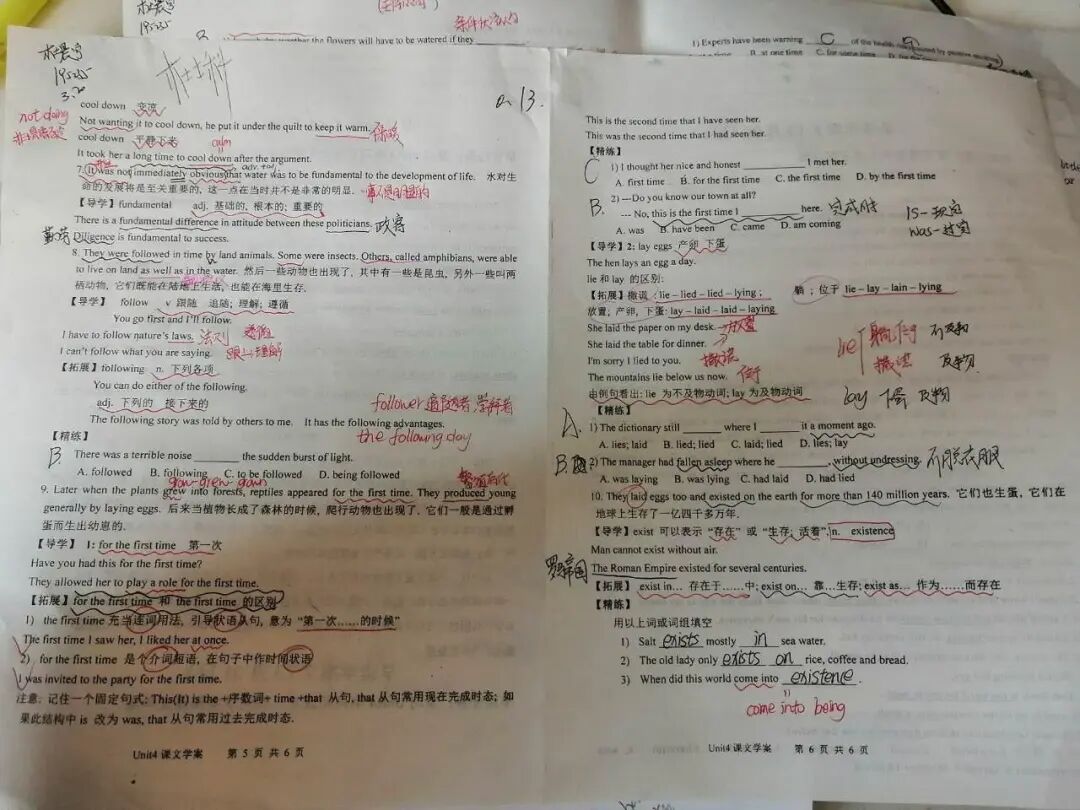 195225
(主将从现)
条件状语从句
the flowers will have to be watered if they
1) Experts have been warning C of the health
B. at one time C. for some time
195225
3.20
a.13.
cool down 变凉
not doing
Not wanting it to cool down, he put it under the quilt to keep it warm. 保暖
cool down 平静下来 calm
It took her a long time to cool down after the argument.
7. It was not immediately obvious that water was to be fundamental to the development of life. 水对生
命的发展将是至关重要的, 这一点在当时并不是非常的明显.
【导学】fundamental adj. 基础的, 根本的; 重要的
There is a fundamental difference in attitude between these politicians. 政客
勤劳 Diligence is fundamental to success.
8. They were followed in time by land animals. Some were insects. Others, called amphibians, were able
to live on land as well as in the water. 然后一些动物也出现了, 其中有一些是昆虫, 另外一些叫两
栖动物, 它们既能在陆地上生活, 也能在海里生存.
【导学】 follow v 跟随 追随; 理解; 遵循
You go first and I'll follow.
I have to follow nature's laws. 法则 遵循
I can't follow what you are saying. 跟上, 理解
【拓展】following n. 下列各项
You can do either of the following.
adj. 下列的 接下来的
follower 追随者,崇拜者
The following story was told by others to me. It has the following advantages.
the following day
【精练】
B. There was a terrible noise ______ the sudden burst of light.
A. followed B. following C. to be followed D. being followed
grow-grew-grown
9. Later when the plants grew into forests, reptiles appeared for the first time. They produced young
generally by laying eggs. 后来当植物长成了森林的时候, 爬行动物也出现了. 它们一般是通过孵
蛋而生出幼崽的.
【导学】 1: for the first time 第一次
Have you had this for the first time?
They allowed her to play a role for the first time.
【拓展】for the first time 和 the first time 的区别
1) the first time 充当连词用法, 引导状语从句, 意为 “第一次……的时候”
The first time I saw her, I liked her at once.
2) for the first time 是个介词短语, 在句子中作时间状语
I was invited to the party for the first time.
注意: 记住一个固定句式: This(It) is the +序数词+ time +that 从句, that 从句常用现在完成时态; 如
果此结构中 is 改为 was, that 从句常用过去完成时态.
Unit4 课文学案 第 5 页 共 6 页
This is the second time that I have seen her.
This was the second time that I had seen her.
【精练】
C 1) I thought her nice and honest ______ I met her.
A. first time B. for the first time C. the first time D. by the first time
B. 2) ---Do you know our town at all?
--- No, this is the first time I ______ here. 完成时 is-现完
A. was B. have been C. came D. am coming was-过完
【导学】2: lay eggs 产卵 下蛋
The hen lays an egg a day.
lie 和 lay 的区别:
【拓展】撒谎 : lie – lied – lied – lying ; 躺 ; 位于 lie – lay – lain – lying
放置; 产卵, 下蛋: lay – laid – laid – laying
She laid the paper on my desk. → 放置
She laid the table for dinner.
I'm sorry I lied to you. 撒谎
The mountains lie below us now. 位于
由例句看出: lie 为不及物动词; lay 为及物动词
lie 躺, 位于 不及物
撒谎
lay 下蛋 及物
【精练】
A. 1) The dictionary still ______ where I ______ it a moment ago.
A. lies; laid B. lied; lied C. laid; lied D. lies; lay
B. 2) The manager had fallen asleep where he ______, without undressing. 不脱衣服
A. was laying B. was lying C. had laid D. had lied
10. They laid eggs too and existed on the earth for more than 140 million years. 它们也生蛋, 它们在
地球上生存了一亿四千多万年.
【导学】exist 可以表示 “存在” 或 “生存; 活着”. n. existence
Man cannot exist without air.
罗马帝国 The Roman Empire existed for several centuries.
【拓展】 exist in… 存在于……中; exist on… 靠…生存; exist as… 作为……而存在
【精练】
用以上词或词组填空
1) Salt exists mostly in sea water.
2) The old lady only exists on rice, coffee and bread.
3) When did this world come into existence.
come into being
Unit4 课文学案 第 6 页 共 6 页